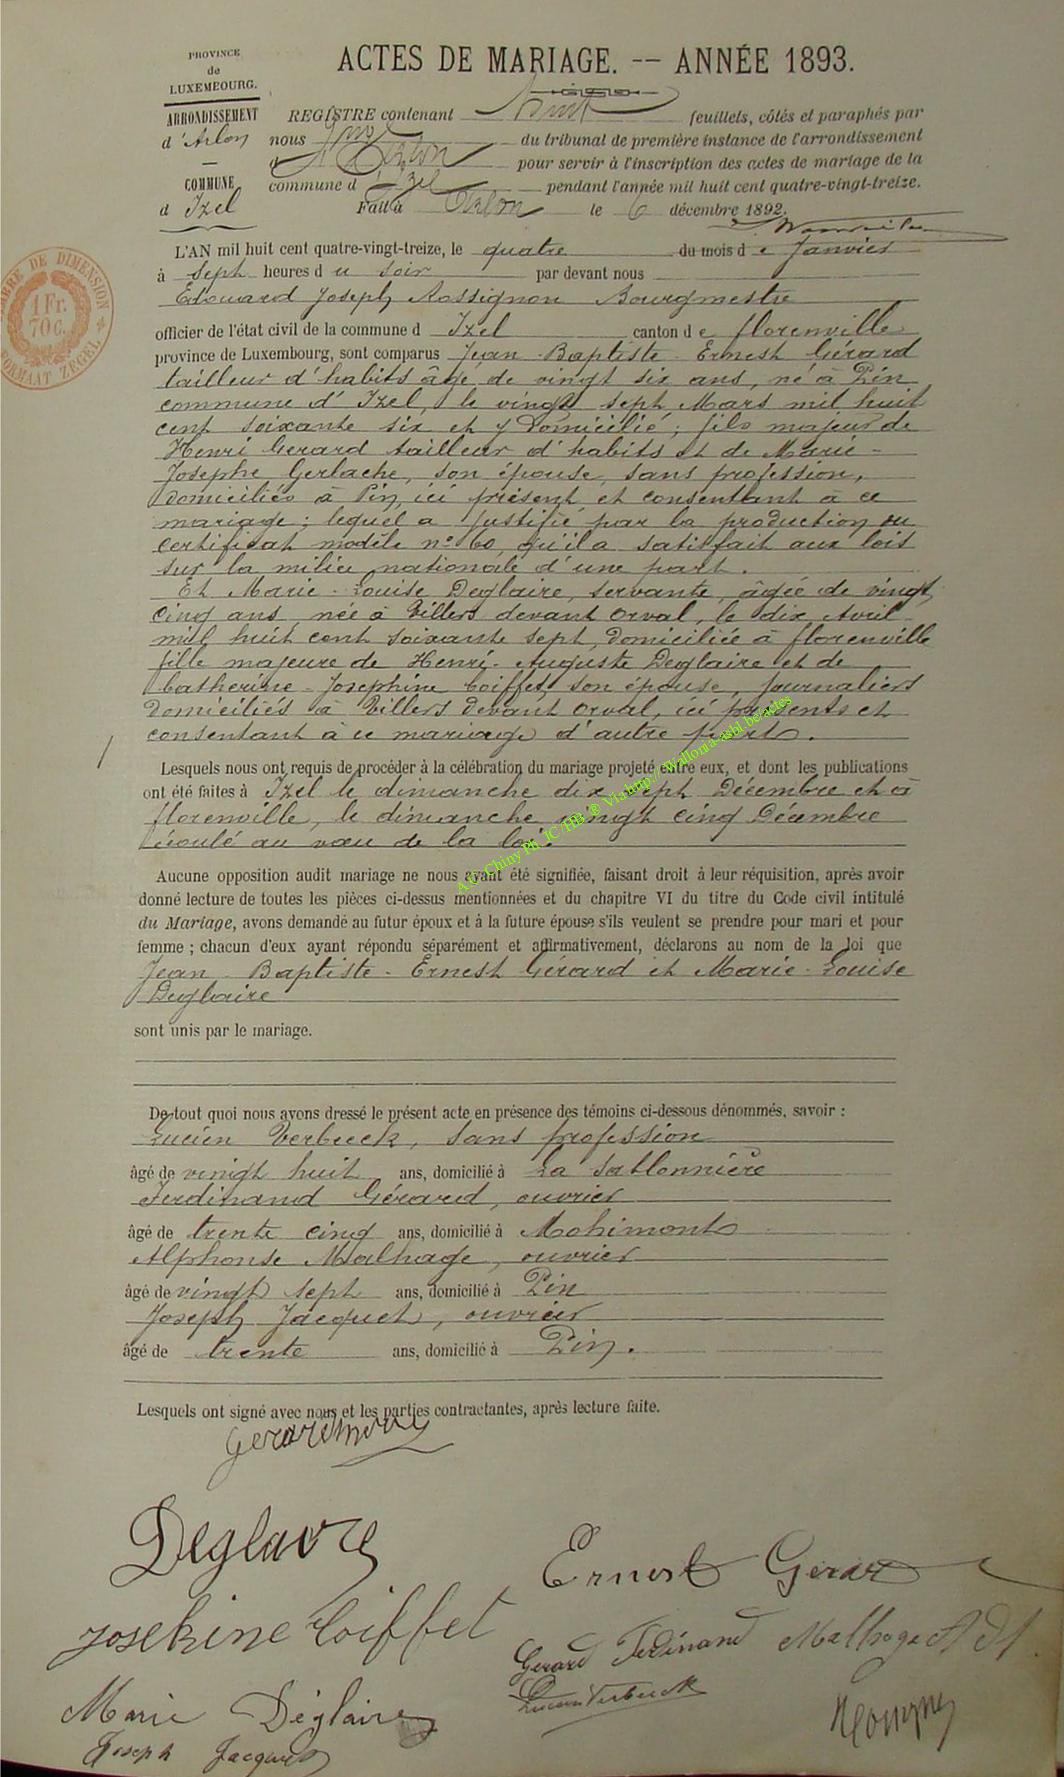 PROVINCE
de
LUXEMBOURG.
ARRONDISSEMENT
d'Arlon
COMMUNE
d Izel
ACTES DE MARIAGE. -- ANNÉE 1893.
REGISTRE contenant huit feuillets, côtés et paraphés par
nous du tribunal de première instance de l'arrondissement
d'Arlon pour servir à l'inscription des actes de mariage de la
commune d'Izel pendant l'année mil huit cent quatre-vingt-treize.
Fait à Arlon le 6 décembre 1892.
TIMBRE DE DIMENSION
1 Fr.
70 c.
FORMAAT ZEGEL
L'AN mil huit cent quatre-vingt-treize, le quatre du mois de Janvier
à sept heures du soir par devant nous
Edouard Joseph Rossignon Bourgmestre
officier de l'état civil de la commune d Izel canton de florenville
province de Luxembourg, sont comparus Jean-Baptiste-Ernest Gérard
tailleur d'habits âgé de vingt six ans, né à Pin
commune d'Izel, le vingt sept Mars mil huit
cent soixante six et y domicilié ; fils majeur de
Henri Gerard tailleur d'habits et de Marie-
Josephe Gerlache, son épouse, sans profession,
domiciliés à Pin, ici présent et consentant à ce
mariage ; lequel a justifié par la production du
certificat modèle n° 60, qu'il a satisfait aux lois
sur la milice nationale d'une part.
Et Marie-Louise Deglaire, servante, âgée de vingt
cinq ans, née à Villers devant Orval, le dix Avril
mil huit cent soixante sept, domiciliée à florenville
fille majeure de Henri-Auguste Deglaire et de
Catherine-Josephine Coiffet, son épouse, journaliers
domiciliés à Villers devant Orval, ici présents et
consentant à ce mariage d'autre part.
Lesquels nous ont requis de procéder à la célébration du mariage projeté entre eux, et dont les publications
ont été faites à Izel le dimanche dix sept Décembre et à
florenville, le dimanche vingt cinq Décembre
écoulé au vœu de la loi.
A.C. Chiny Ph. JC/HB ® Via http://Wallonia-asbl.be/actes
Aucune opposition audit mariage ne nous ayant été signifiée, faisant droit à leur réquisition, après avoir
donné lecture de toutes les pièces ci-dessus mentionnées et du chapitre VI du titre du Code civil intitulé
du Mariage, avons demandé au futur époux et à la future épouse s'ils veulent se prendre pour mari et pour
femme ; chacun d'eux ayant répondu séparément et affirmativement, déclarons au nom de la loi que
Jean-Baptiste-Ernest Gérard et Marie-Louise
Deglaire
sont unis par le mariage.
De tout quoi nous avons dressé le présent acte en présence des témoins ci-dessous dénommés, savoir :
Lucien Verbeeck, sans profession
âgé de vingt huit ans, domicilié à La Sablonnière
Ferdinand Gérard, ouvrier
âgé de trente cinq ans, domicilié à Mohimont
Alphonse Malhage, ouvrier
âgé de vingt sept ans, domicilié à Pin
Joseph Jacquet, ouvrier
âgé de trente ans, domicilié à Pin.
Lesquels ont signé avec nous et les parties contractantes, après lecture faite.
Gerard
Deglaire
Ernest Gerard
Josephine Coiffet
Gerard Ferdinand Malhage
Lucien Verbeeck
Marie Déglaire
Joseph Jacquet